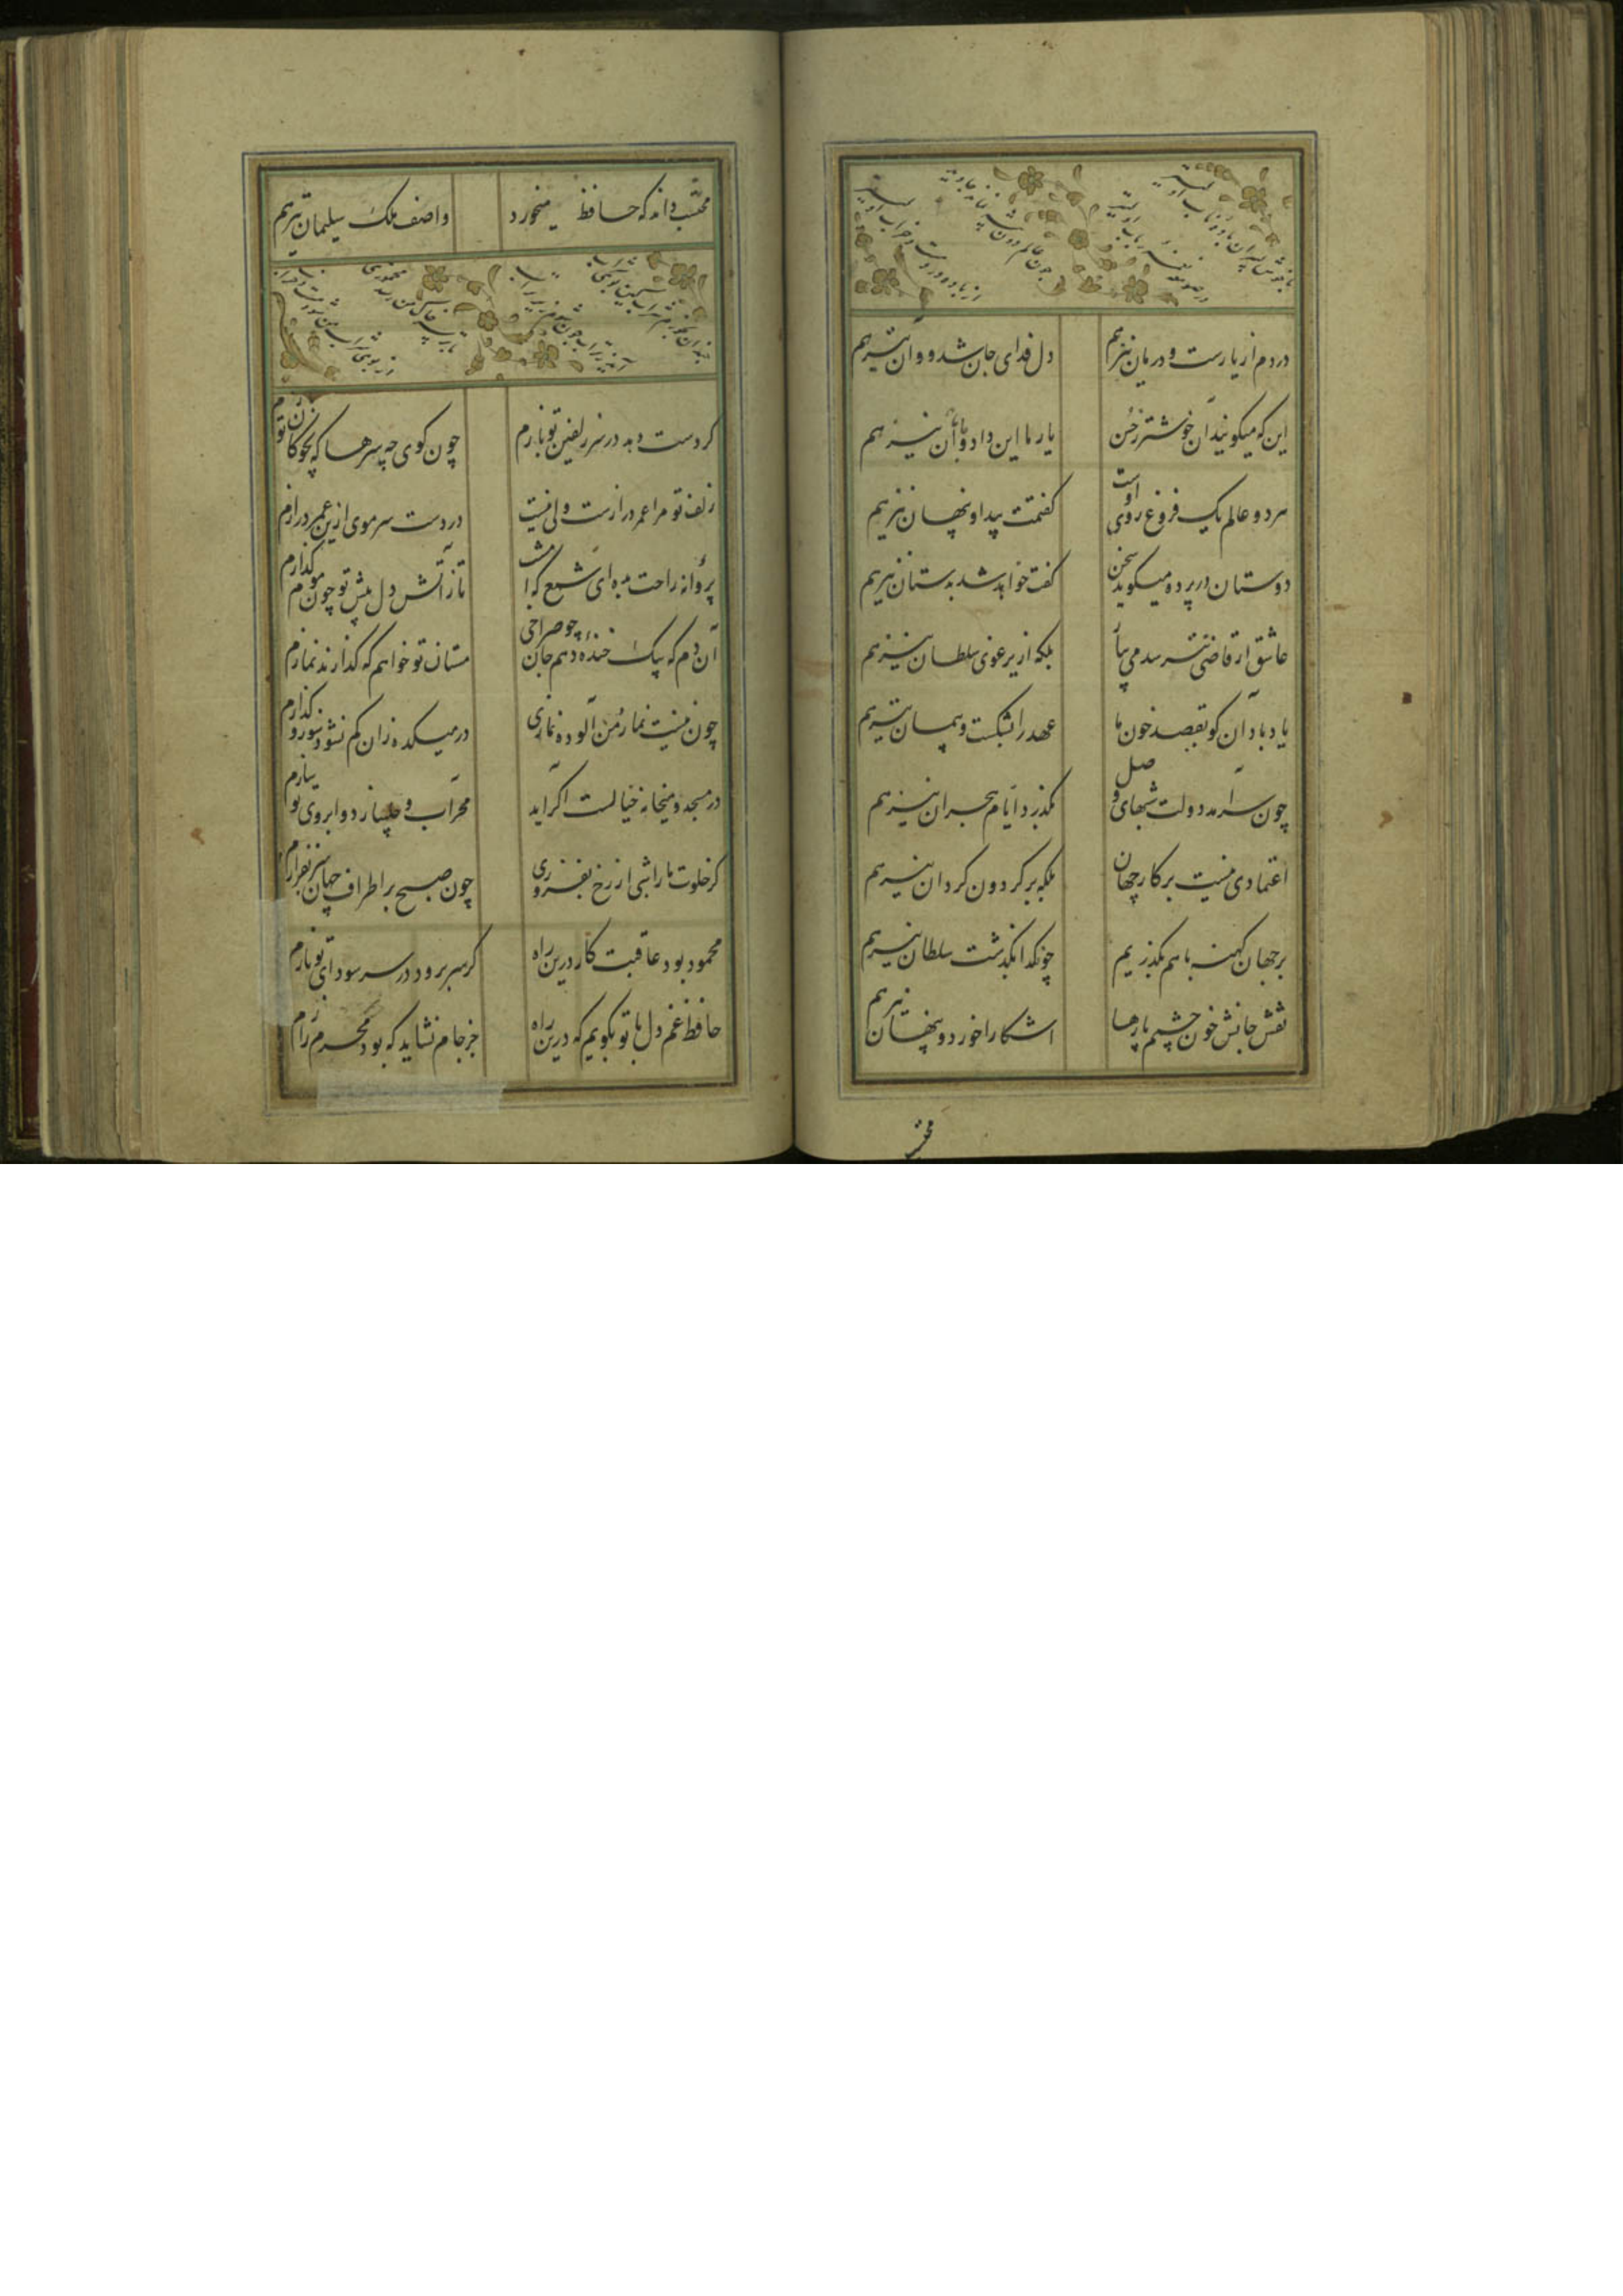 دردم از یارست و درمان نیز هم
دل فدای جان شد و آن نیز هم
این که میکویند آن خوشتر ز حسن
یار ما این دارد و آن نیز هم
هر دو عالم یک فروغ روی اوست
کفتمت پیدا و پنهان نیز هم
دوستان در پرده میکوید سخن
کفت خواهد شد بدستان نیز هم
عاشق از قاضی نترسد می بیار
بلکه از یرغوی سلطان نیز هم
یاد باد آن کو بقصد خون ما
عهد را بشکست و پیمان نیز هم
چون سرآمد دولت شبهای وصل
بگذرد ایام هجران نیز هم
اعتمادی نیست بر کار جهان
بلکه بر کردون کردان نیز هم
بر جهان کهنه ما هم بگذریم
چونکه بگذشت سلطان نیز هم
نقش خون چشم بارها
اشکارا خورد و پنهان نیز هم
محتسب
محتسب داند که حافظ میخورد
واصف ملک سلیمان نیز هم
کر دست دهد در سر زلفین تو بازم
چون کوی چه سرها که بچوکان تو
زلف تو مرا عمر درازست ولی نیست
در دست سر موی ازین عمر درازم
پروانه راحت بده ای شمع که امشب
از آتش دل پیش تو چون موم کدازم
آن دم که بیک خنده دهم جان چو صراحی
مستان تو خواهم که کذارند نمازم
چون نیست نماز من آلوده نمازی
در میکده زان کم نشود سوز و کدازم
در مسجد و میخانه خیالت اکر آید
محراب و ز دو ابروی تو سازم
کر خلوت ما را شبی از رخ بفروزی
چون صبح بر اطراف جهان سر بفرازم
محمود بود عاقبت کار درین راه
کر سر برود در سر سودای تو بازم
حافظ غم دل با تو بکویم که درین راه
جز جام نشاید که بود محرم رازم